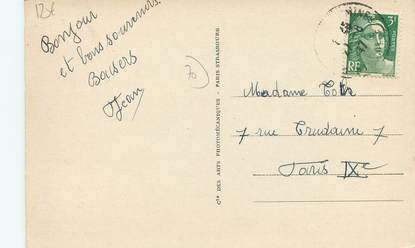 12€
Bonjour
et bons souvenirs.
Baisers
Jean
70
Cie DES ARTS PHOTOMÉCANIQUES - PARIS-STRASBOURG
3F
RF
POSTES
Madame
7 rue Trudaine 7
Paris IXe